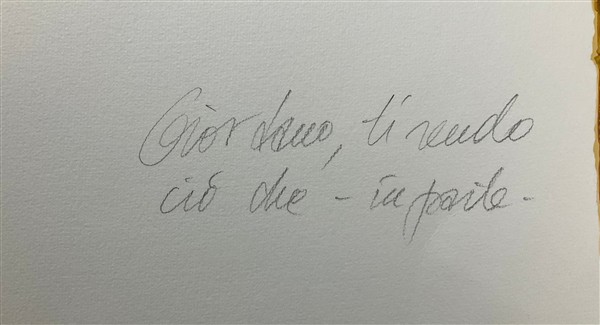 Giordano, ti rendo
ciò che - in parte -